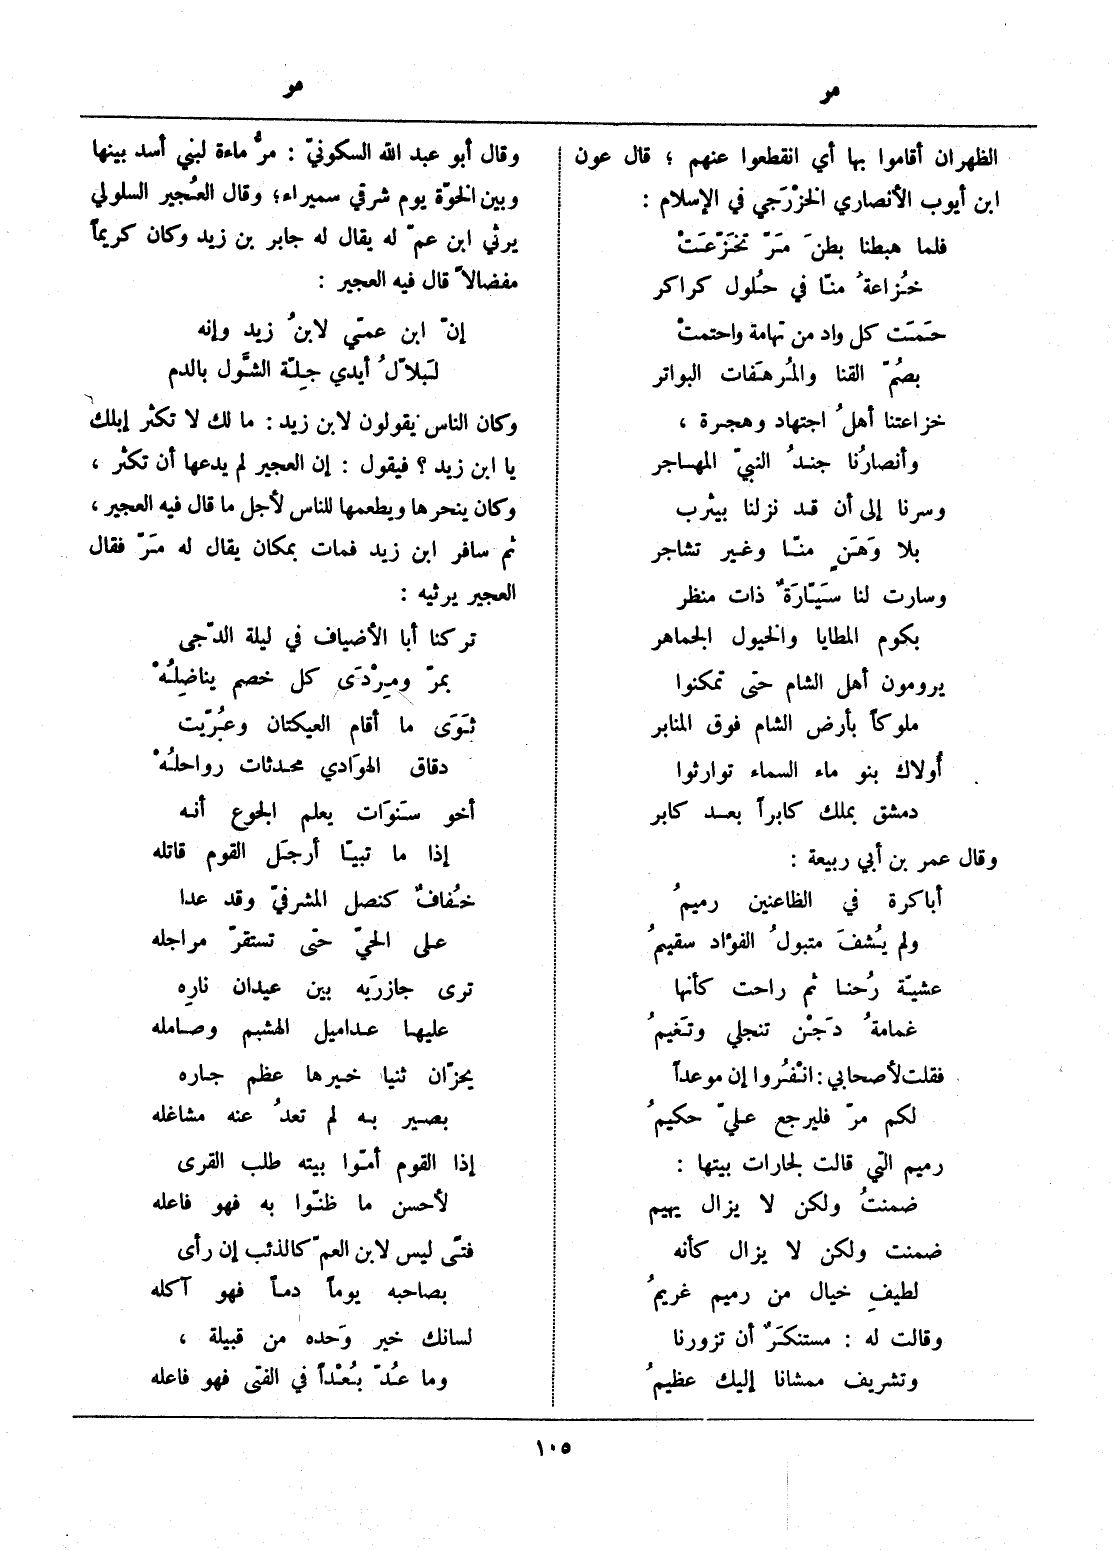 مر
مر
الظهران أقاموا بها أي انقطعوا عنهم ؛ قال عون
ابن أيوب الأنصاري الخزْرَجي في الإسلام :
فلما هبطنا بطنَ مَرّ تخَزّعَتْ
خُزاعةُ منّا في حُلول كراكر
حَمَت كل واد من تهامة واحتمتْ
بصُمّ القنا والمُرهَفات البواتر
خزاعتنا أهلُ اجتهاد وهجرة ،
وأنصارُنا جندُ النبيّ المهاجر
وسرنا إلى أن قد نزلنا بيثرب
بلا وَهَنٍ منّا وغير تشاجر
وسارت لنا سَيّارَةٌ ذات منظر
بكوم المطايا والخيول الجماهر
يرومون أهل الشام حتى تمكنوا
ملوكاً بأرض الشام فوق المنابر
أُولاك بنو ماء السماء توارثوا
دمشق بملك كابراً بعد كابر
وقال عمر بن أبي ربيعة :
أباكرة في الظاعنين رميمُ
ولم يُشفَ متبولُ الفؤاد سقيمُ
عشيّة رُحنا ثم راحت كأنها
غمامةُ دَجْن تنجلي وتَغيمُ
فقلت لأصحابي : انْفُروا إن موعداً
لكم مرّ فليرجع عليّ حكيمُ
رميم التي قالت لجارات بيتها :
ضمنتُ ولكن لا يزال يهيم
ضمنت ولكن لا يزال كأنه
لطيفِ خيال من رميم غريمُ
وقالت له : مستنكَرٌ أن تزورنا
وتشريف ممشانا إليك عظيمُ
وقال أبو عبد الله السكونيّ : مرُّ ماءة لبني أسد بينها
وبين الخوّة يوم شرقي سميراء؛ وقال العُجير السلولي
يرثي ابن عمّ له يقال له جابر بن زيد وكان كريماً
مفضالاً قال فيه العجير :
إنّ ابن عمّي لابنُ زيد وإنه
لَبلاّلُ أيدي جِلّة الشَّول بالدم
وكان الناس يقولون لابن زيد : ما لك لا تكثر إبلك
يا ابن زيد ؟ فيقول : إن العجير لم يدعها أن تكثر ،
وكان ينحرها ويطعمها للناس لأجل ما قال فيه العجير ،
ثم سافر ابن زيد فمات بمكان يقال له مَرّ فقال
العجير يرثيه :
تركنا أبا الأضياف في ليلة الدّجى
بمرّ ومِرْدَى كل خصم يناضِلُهْ
ثَوَى ما أقام العيكتان وعُرّيت
دقاق الهوَادي محدثات رواحلُهْ
أخو سَنَوَات يعلم الجوع أنه
إذا ما تبيّا أرجَل القوم قاتله
خُفافٌ كنصل المشرفيّ وقد عدا
على الحيّ حتى تستقرّ مراجله
ترى جازرَيه بين عيدان نارِه
عليها عداميل الهشيم وصامله
يحزّان ثنيا خيرها عظم جاره
بصير به لم تعدُ عنه مشاغله
إذا القوم أمّوا بيته طلب القرى
لأحسن ما ظنّوا به فهو فاعله
فتًى ليس لابن العمّ كالذئب إن رأى
بصاحبه يوماً دماً فهو آكله
لسانك خير وَحده من قبيلة ،
وما عُدّ بُعْداً في الفتى فهو فاعله
١٠٥